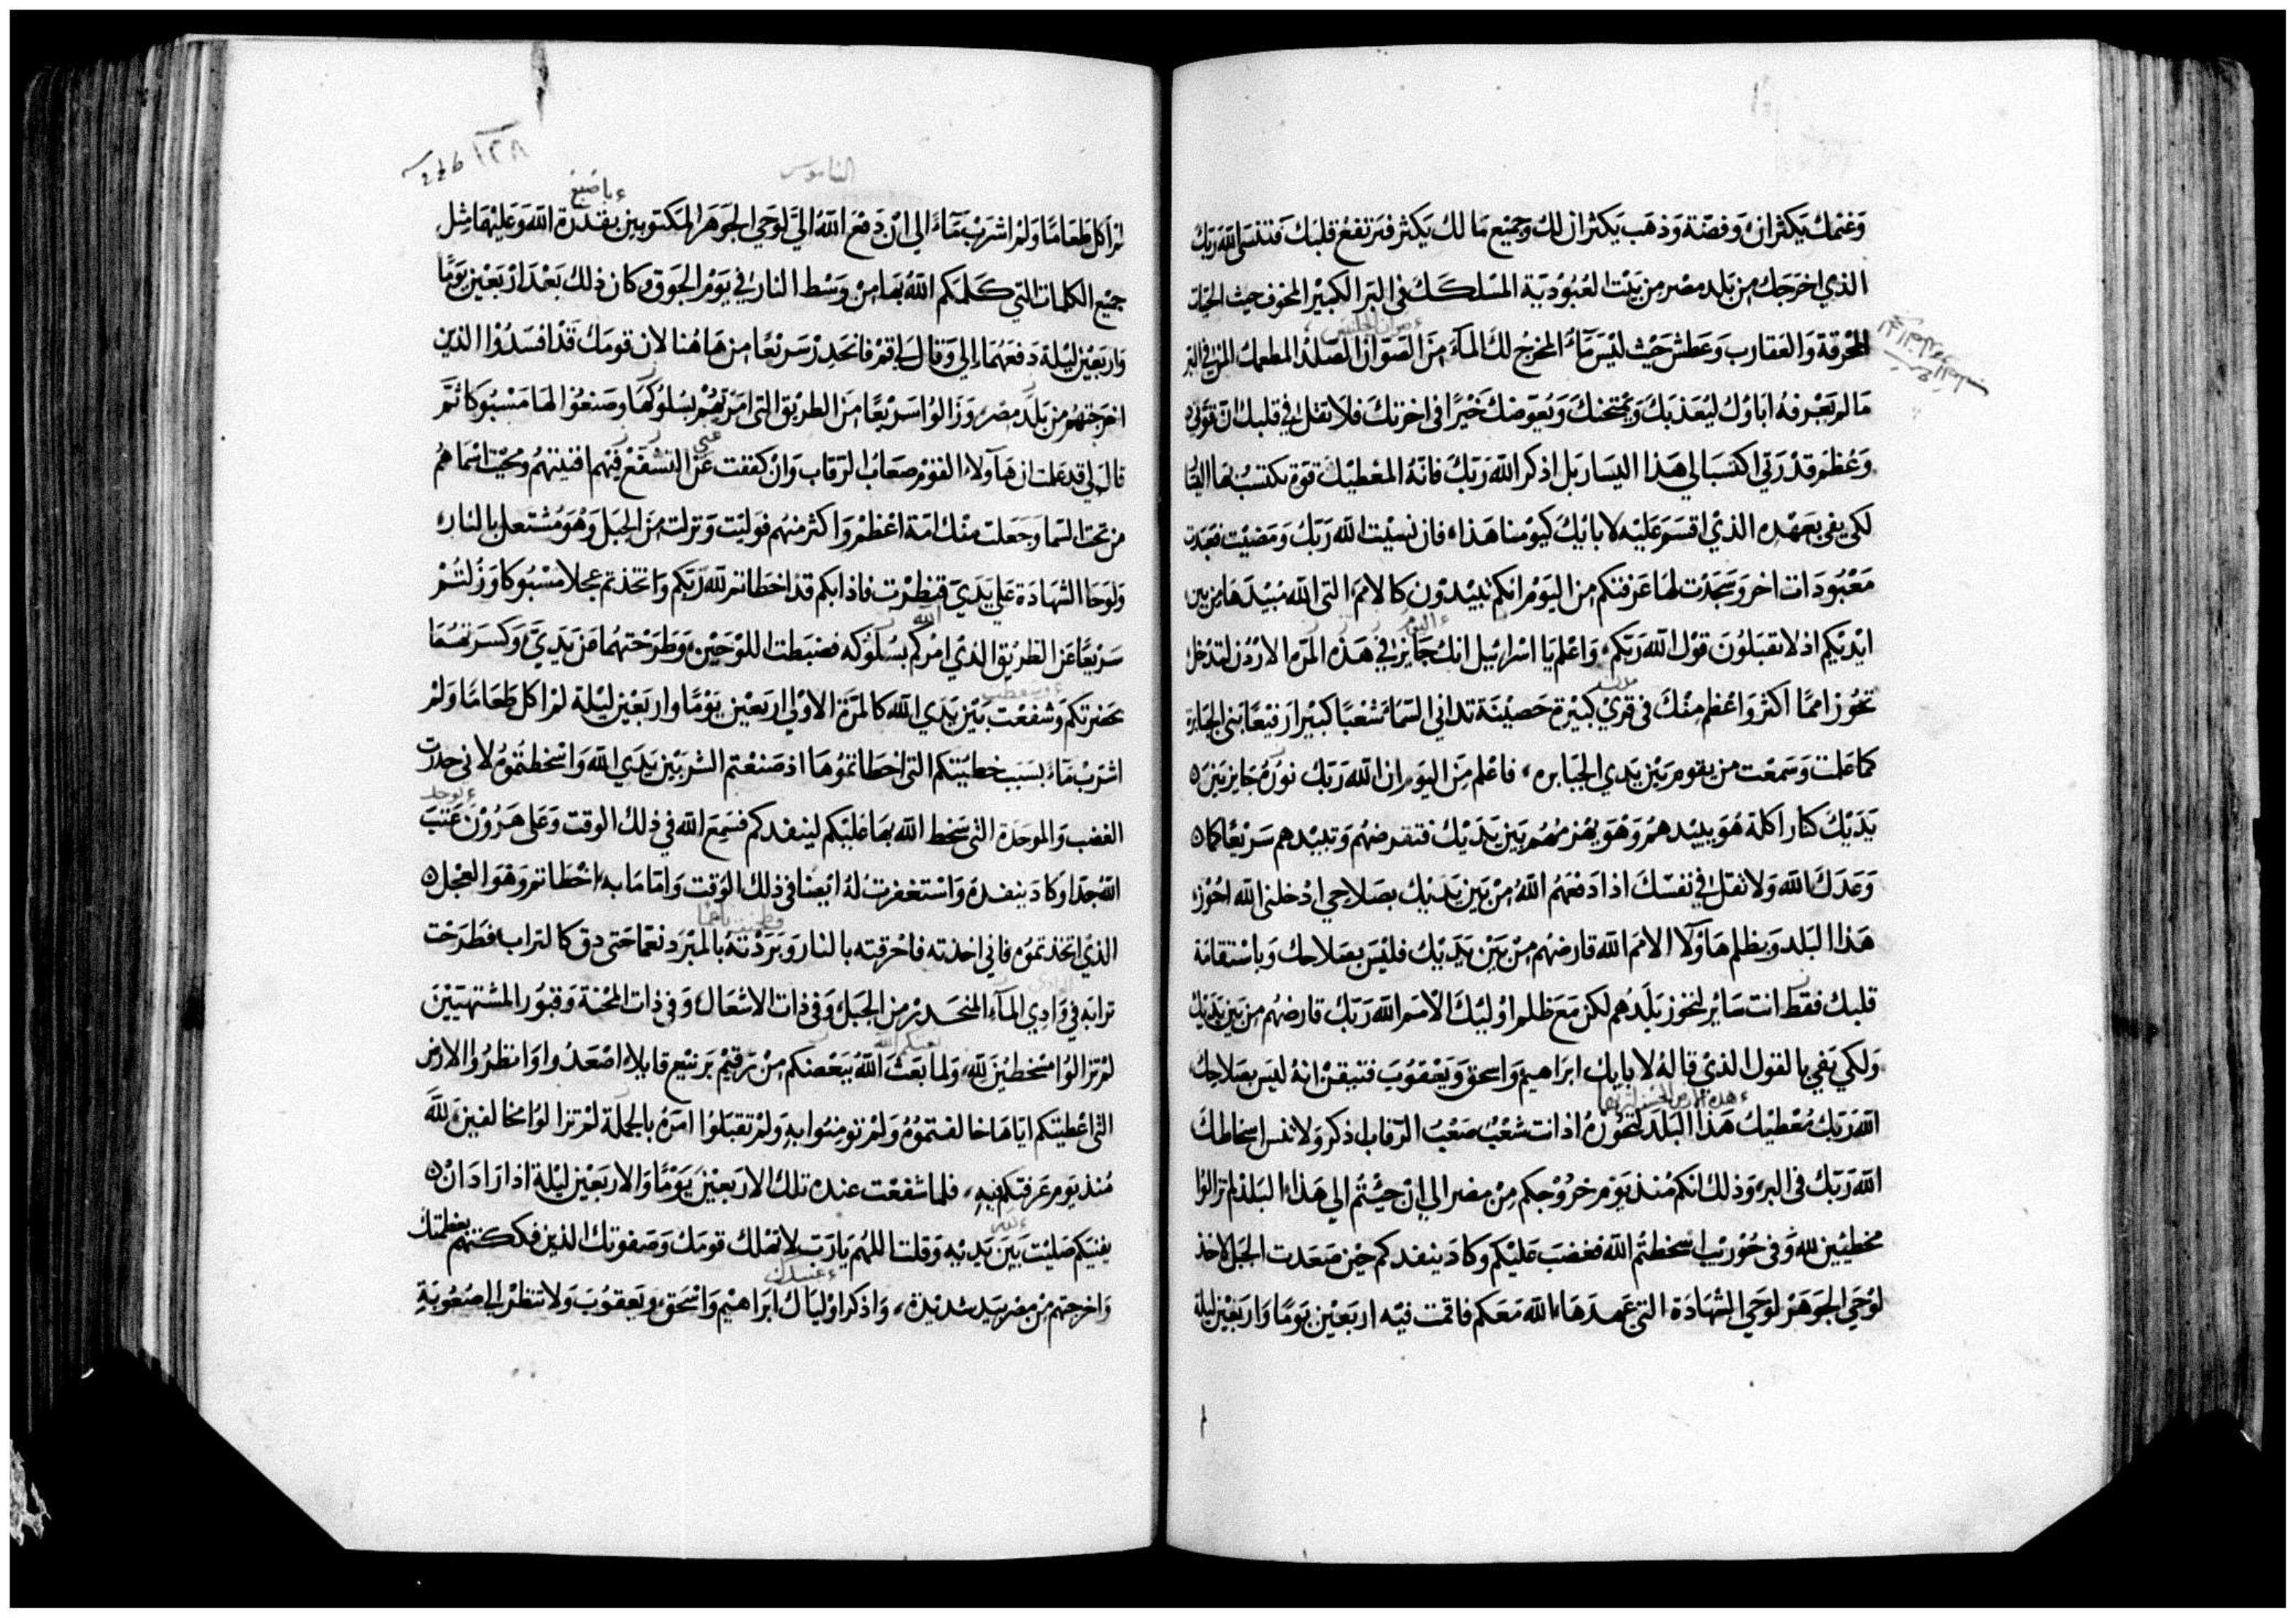 وَغنمك يَكثران وَفضّة وَذهَب يَكثران لك وجميْع مَا لك يَكثر فترتفعُ قلبَك فتنسَى الله رَبّك
الذي اخرَجَك من بَلد مصْر من بَيْت العُبُوْديّة المسْلكَك في البَر الكبيْر المخوف حيث الحيّات
المحُرقة وَالعَقارب وَعَطش حَيْث ليْسَ مَآءً المخرج لك المآءَ منَ الصّوّان الصَلد المطعمك المَن في البَر
مَا لم يَعْرفهُ ابَاوْك ليُعَذبَك وَيمْتحنك وَيُعَوّضك خَيْرًا في اخرتك فلا تقل في قلبك ان قوّتي
وَعُظم قدْرَتي اكتسَبَا لي هَذا اليسَار بَل اذكر الله رَبّكَ فانّهُ المعْطيْك قوّة تكتسبُ بهَا
لكي يفي بعَهْدِه الذيْ اقسَمَ عَليْه لابَايْكَ كيَوْمنا هَذاء فان نسيْت الله رَبّكَ وَمَضيْت فعَبَدت
مَعْبُوْدَات اخر وَسَجَدْت لهَا عَرفتكم من اليَوْم انكم تبيْدوْن كالامَم التي الله مُبيْدَهَا من بَين
ايْديْكم اذ لا تقبَلوْنَ قوْل الله رَبّكم، وَاعْلم يَا اسْرائيل انك جَايز في هَذه المَرّه الارْدُن لتدْخل
تحُوْز اممًا اكثر وَاعْظم منْك في قريْ كبيْرة حَصيْنة تداني السّمَاء شعْبًا كبيْرا رَفيْعًا بَني الجَبَابرة
كما عَلمت وَسَمعْت من يقوم بَيْن يَدي الجَبَابره، فاعْلم منَ اليَوْم ان الله رَبّك نوْرُه جَايز بَيْن ٥
يَدَيْك كنار اكلة هُوَ يبيْدهمْ وَهُوَ يهْزمُهُم بَين يَدَيْك فتقرضهُم وَتبيْدهم سَريْعًا كما ٥
وَعَدَكَ الله وَلا تقل في نفسْك اذا دَفعَهُم اللهُ منْ بَين يَدَيْك بصَلاحي ادْخلني الله احُوْز
هَذا البَلد وَبظلم هَاؤلا الامَم الله قارضهُم منْ بَيْن يَدَيْك فليْسَ بصَلاحك وَباسْتقامَة
قلبك فقط انت سَايْر لتحُوْز بَلَدهم لكن مَع ظلم اوليْكَ الامَم الله رَبّك قارضهُم من بَين يَدَيك
وَلكي يَفي بالقول الذيْ قالهُ لابَايك ابرَاهيْم وَاسحق وَيَعْقوْبَ فتيقن انهُ ليْسَ بصَلاحك
اللهُ رَبّك مُعْطيْك هَذا البَلَد لتحُوْزهُ اذ انت شعْبْ صَعْبُ الرّقاب اذكر وَلا تنس اسخاطك
الله رَبّك في البر، وَذلك انكم مُنذ يَوْم خرُوْجكم منْ مصْر الي انْ جئتُم الي هَذا البَلد لم تزالوا
مخطيين لله وَفي حُوْريْب اسْخطتُم الله فغضبَ عَليْكم وكادَ ينفدكم حيْن صَعَدت الجبَل لاخذ
لوْحَي الجَوْهَر لوْحَي الشهَادَة التي عَهدَهَا الله مَعَكم فاقمت فيْه اربَعيْن يَوْمًا وَاربَعيْن ليْلة
الناموس
١٣٨
لم اكل طعَامًا وَلم اشرَبْ مَآءً الي انْ دَفعَ اللهُ اليّ لوْحَي الجَوْهَر المكتوبين بقدْرَة الله وَعَليْهَا مثل
جميْع الكلمات التي كَلمَكم اللهُ بهَا منْ وَسْط النار في يَوْم الجَوق وكان ذلك بَعْدَ ارْبَعيْن يَوْمًا
وَاربَعيْن ليْلة دَفعَهُمَا الي وَقالَ لي قمْ فانحَدرْ سَريْعًا من هَا هُنا لان قومَك قدْ افسَدُوْا الذين
اخرَجتهُم من بَلَد مصْر وَزَالوْا سَريْعًا منَ الطريْق التي امَرْتهُمْ بسُلوْكهَا وَصَنعُوْا لهَا مَسْبُوكا ثمّ
قال لي قد عَلمت ان هَآولاء القوْم صعَابُ الرّقاب وَانْ كففت عَن التشفّع فيْهم افنيْتهُم وَمحيْت اسْمَاهُم
من تحت السّما وَجَعَلت منْك امّة اعْظمْ وَاكثر منهُم فوَليْت وَنزلت منَ الجبَل وَهُوَ مُشْتعل بالنار
وَلوْحَا الشهَادَة عَلي يَدَيّ فنظرْت فاذا بكم قدْ اخطَاتم لله رَبّكم وَاتخذتم عجلا مسْبُوكا وَزُلتمْ
سَريْعًا عَن الطريْق الذيْ امرَكم بسُلوْكه فضبَطت اللوْحَيْن، وَطَرَحْتهُمَا من يَدَيّ، وَكسَرْتهُمَا
بحَضرَتكم وَشفعْت بَيْن يَدي الله كالمرّة الاوْلي اربَعيْن يَوْمًا وَاربَعيْن ليْلة لم اكل طعَامًا وَلمْ
اشرَبْ مَاءً بسَبَب خطيّتكم التي اخطَاتمُوْهَا اذ صَنعْتم الشر بَيْن يَدي الله وَاسْخطتمُوْهُ لاني حذرت
الغضب وَالموجدَة التي سَخط الله بهَا عَليْكم لينفدكم فسَمعَ الله في ذلك الوقت وَعَلي هَرُوْنَ عَتبَ
اللهُ جدّا وَكادَ ينفدهُ وَاسْتغفرتُ لهُ ايْضًا في ذلك الوَقت وَامّا مَا به اخْطَاتم وَهُوَ العجْل ٥
الذيْ اتخذتمُوْه فاني اخذته فاحْرقته بالنار وَبَرَدْتهُ بالمبْرَد نعمّا حَتى دق كالتراب فطَرَحْت
ترابَهُ في وَادي المآءِ المنحَدر من الجَبَل وَفي ذات الاشْعَال وَفي ذات المحْنة وَقبُور المشتهيَيْن
لمْ تزالوْا مُسْخطيْنَ لله، وَلما بَعَثَ اللهُ ببَعْضكم منْ رَقيْم بَرنيْع قايلا اصْعَدُوا وَانظرُوْا الارض
التي اعْطيتكم ايّاهَا خالفتمُوْهُ وَلم تومنوا به وَلم تقبَلوْا امرَهُ بالجملة لمْ تزالوْا مخالفين لله
مُنذ يَوم عَرفتكم فيه، فلما شفعْت عندَه تلك الاربَعيْنَ يَوْمًا وَالاربَعيْن ليْلة اذ ارَادَ انْ ٥
يفنيَكم صَليْت بَيْن يَديْه وَقلت اللهُم يَارَب لا تهْلك قومَك وَصَفوتك الذين فككتهُم بعَظمتك
وَاخرجتهم من مصْر بيَد شديْدة، وَاذكر اوْليَاك ابرَاهيْم وَاسْحق وَيَعقوْبَ وَلا تنظرْ الي صُعُوْبَةِ